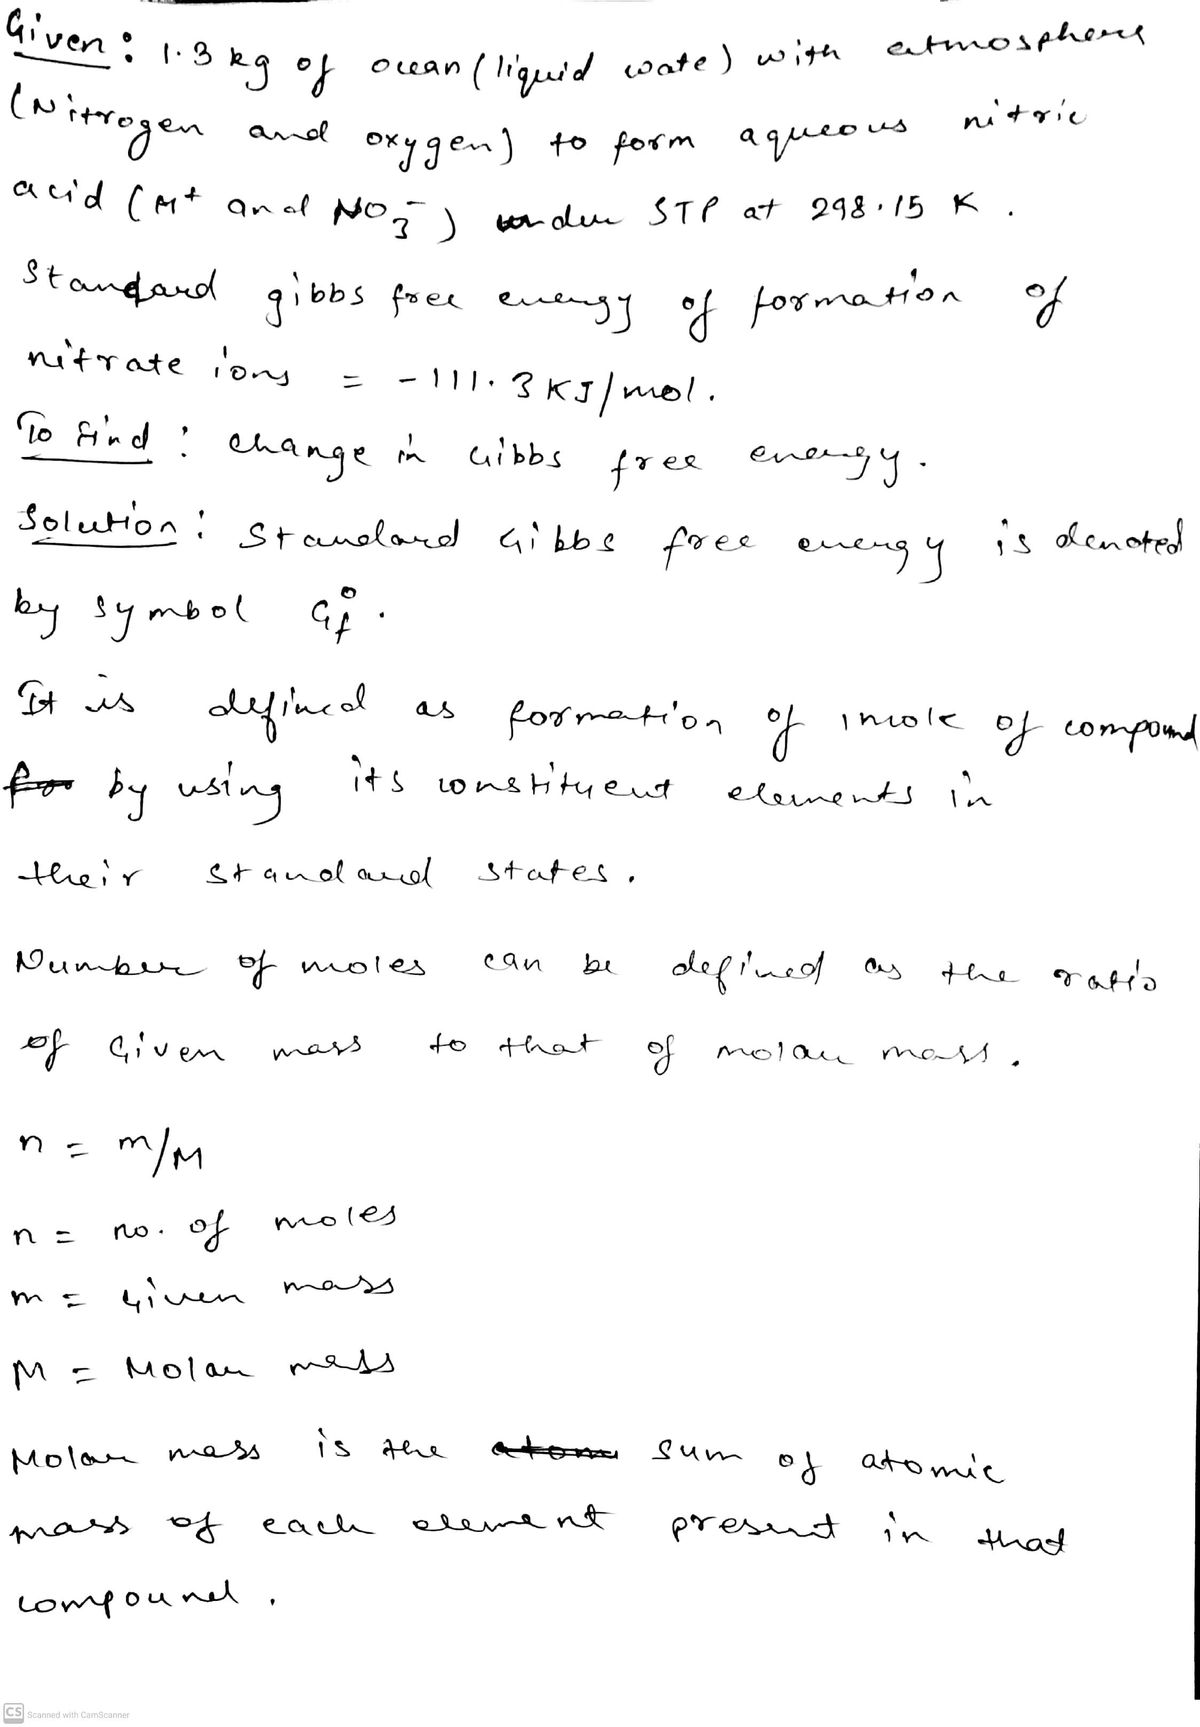 Given: 1.3 kg of ocean (liquid wate) with atmosphere
(Nitrogen and oxygen) to form aqueous nitric
acid (H+ and NO3-) under STP at 298.15 K.
Standard gibbs free energy of formation of
nitrate ions = -111.3 KJ/mol.
To find: change in Gibbs free energy.
Solution: Standard Gibbs free energy is denoted
by symbol G°f.
It is defined as formation of 1 mole of compound
for by using its constituent elements in
their standard states.
Number of moles can be defined as the ratio
of Given mass to that of molar mass.
n = m/M
n = no. of moles
m = Given mass
M = Molar mass
Molar mass is the atom sum of atomic
mass of each element present in that
compound.
CS Scanned with CamScanner